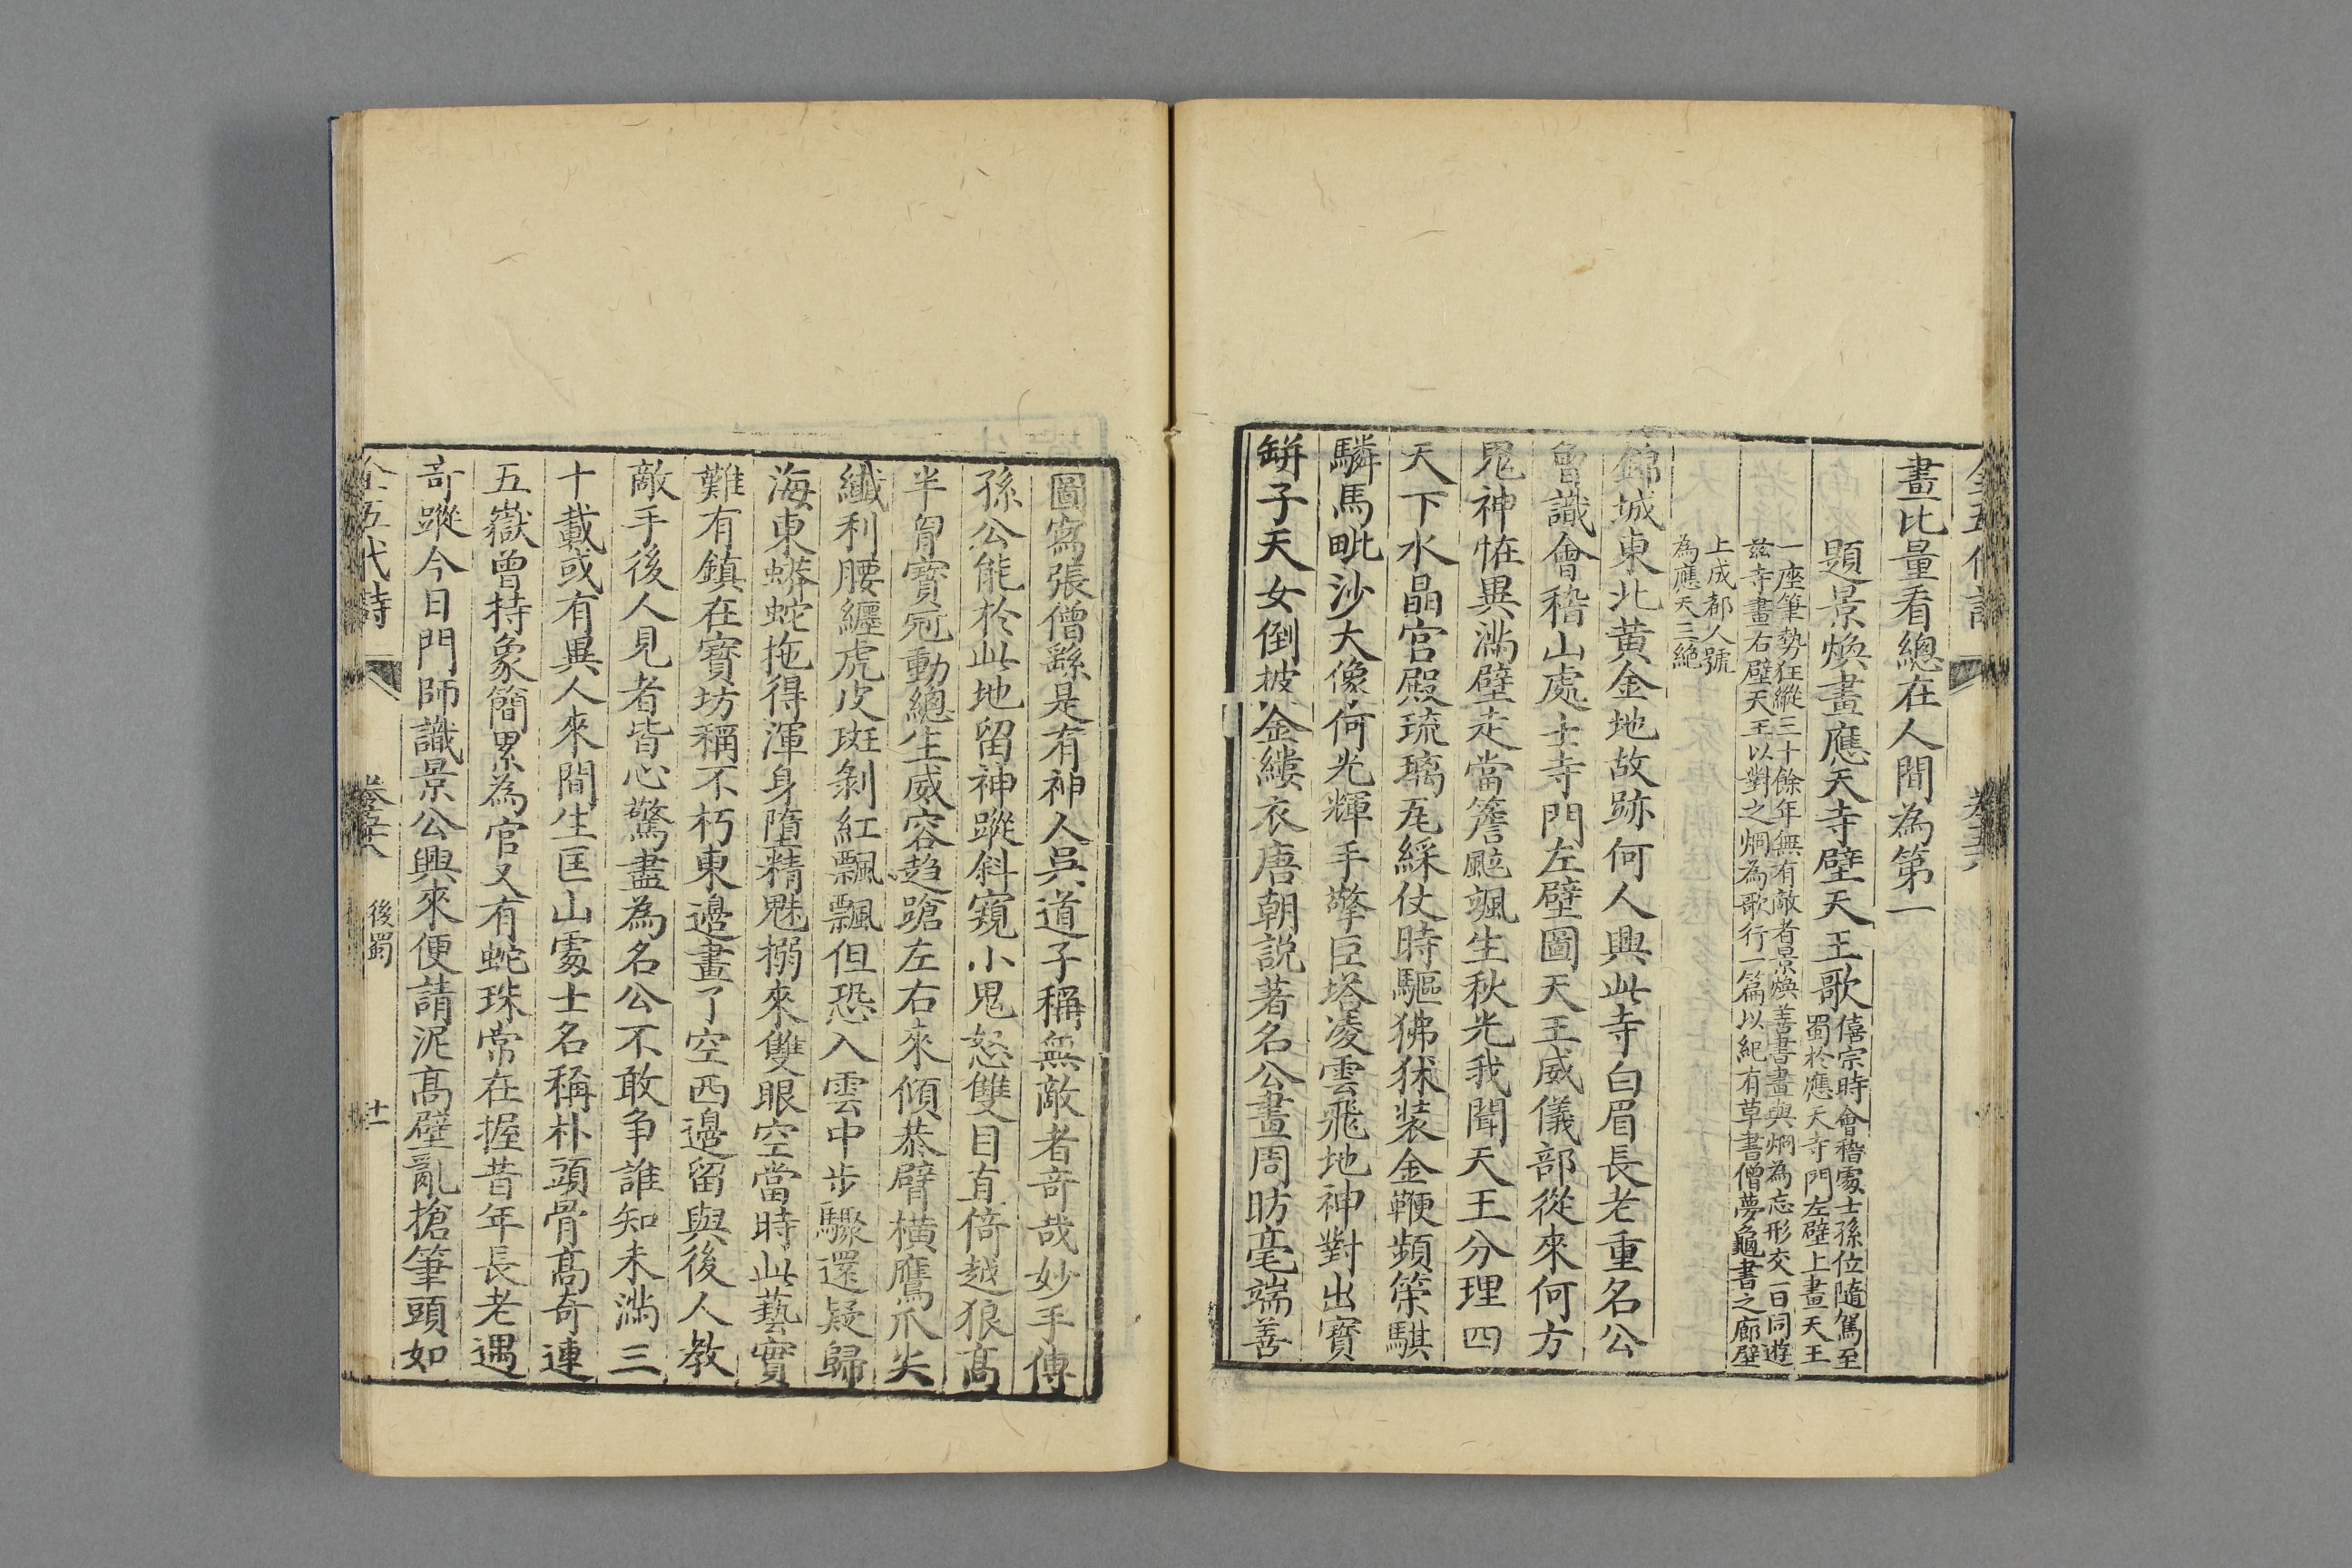 畫比量看總在人間為第一
題景煥畫應天寺壁天王歌
僖宗時會稽處士孫位隨駕至
蜀於應天寺門左壁上畫天王
一座筆勢狂縱三十餘年無有敵者景煥善書畫與烱為忘形交一日同遊
兹寺畫右壁天王以對之烱為歌行一篇以紀有草書僧夢龜書之廊壁
上成都人號
為應天三絶
錦城東北黄金地故跡何人興此寺白眉長老重名公
曾識會稽山處士寺門左壁圖天王威儀部從來何方
鬼神恠異滿壁走當簷颭颯生秋光我聞天王分理四
天下水晶宫殿琉璃瓦綵仗時驅狒㹳装金鞭頻策騏
驎馬毗沙大像何光輝手擎巨塔凌雲飛地神對出寶
缾子天女倒披金縷衣唐朝説著名公畫周昉毫端善
圖寫張僧繇是有神人吳道子稱無敵者竒哉妙手傳
孫公能於此地留神蹤斜窺小鬼怒雙目直倚越狼髙
半胷寶冠動總生威容趋蹌左右來傾恭臂橫鷹爪尖
纎利腰纒虎皮斑剝紅飄飄但恐入雲中步驟還疑歸
海東蟒蛇拖得渾身墮精魅搦來雙眼空當時此藝實
難有鎮在寳坊稱不朽東邉畫了空西邉留與後人教
敵手後人見者皆心驚盡為名公不敢争誰知未滿三
十載或有異人來間生匡山處士名稱朴頭骨髙奇連
五嶽曾持象簡累為官又有蛇珠常在握昔年長老遇
竒蹤今日門師識景公興來便請泥髙壁亂搶筆頭如
全五代詩
後蜀
十一